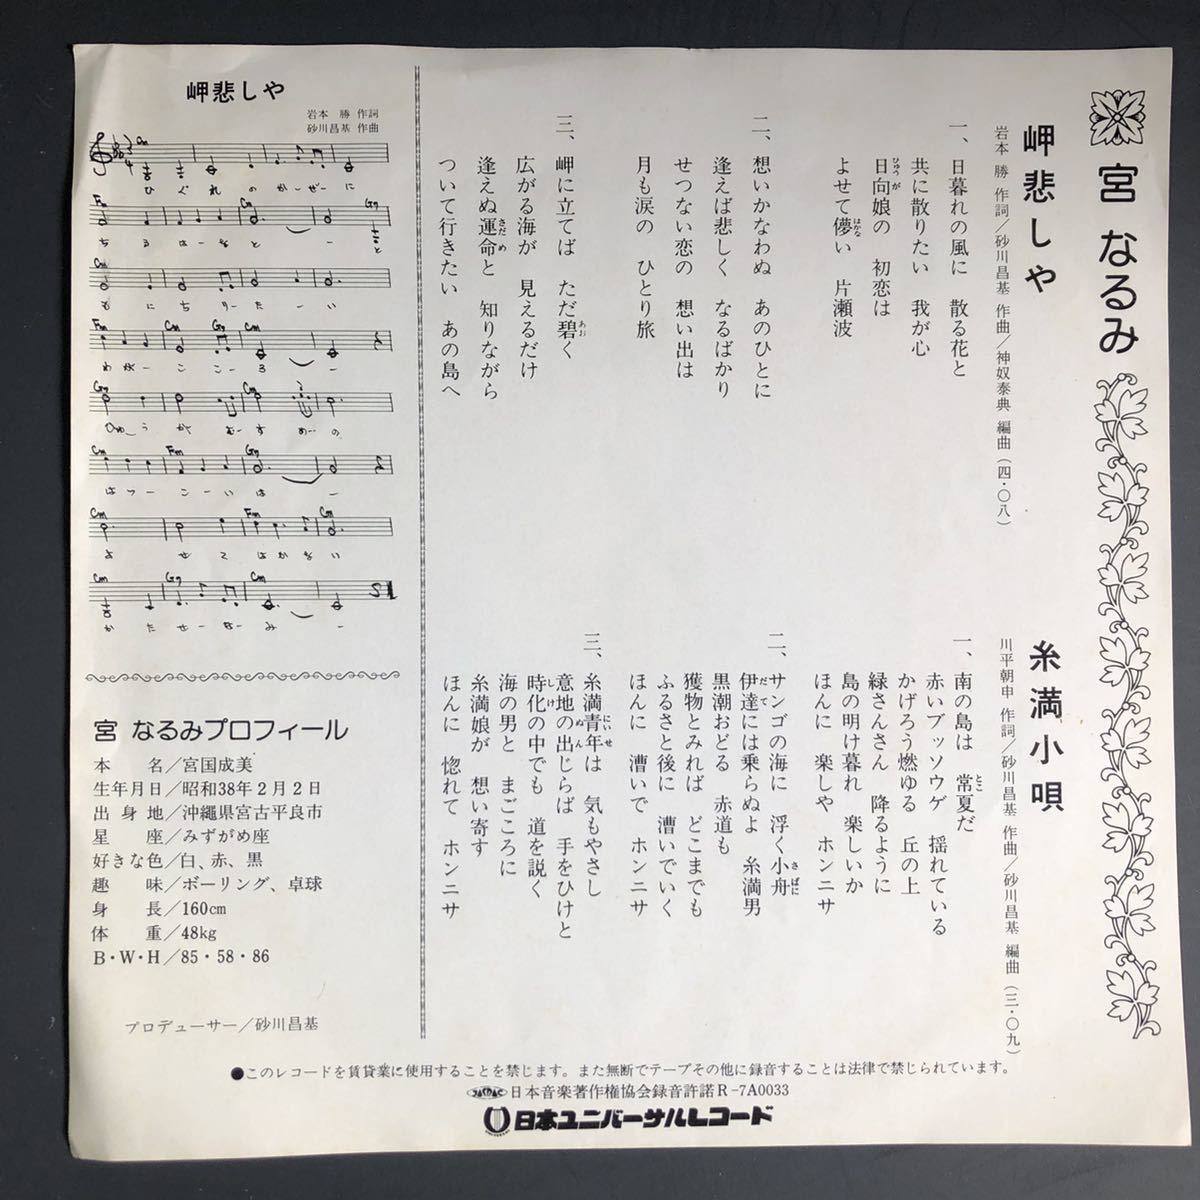 宮 なるみ
岬悲しや
岩本 勝 作詞／砂川昌基 作曲／神奴泰典 編曲（四・〇八）
一、日暮れの風に 散る花と
共に散りたい 我が心
日向娘の 初恋は
ひゅうが
よせて儚い 片瀬波
はかな
二、想いかなわぬ あのひとに
逢えば悲しく なるばかり
せつない恋の 想い出は
月も涙の ひとり旅
三、岬に立てば ただ碧く
あお
広がる海が 見えるだけ
逢えぬ運命と 知りながら
さだめ
ついて行きたい あの島へ
糸満小唄
川平朝申 作詞／砂川昌基 作曲／砂川昌基 編曲（三・〇九）
一、南の島は 常夏だ
とこ
赤いブッソウゲ 揺れている
かげろう燃ゆる 丘の上
緑さんさん 降るように
島の明け暮れ 楽しいか
ほんに 楽しや ホンニサ
二、サンゴの海に 浮く小舟
さばに
伊達には乗らぬよ 糸満男
だて
黒潮おどる 赤道も
獲物とみれば どこまでも
ふるさと後に 漕いでいく
ほんに 漕いで ホンニサ
三、糸満青年は 気もやさし
にいせ
意地の出じらば 手をひけと
ぬん
時化の中でも 道を説く
しけ
海の男と まごころに
糸満娘が 想い寄す
ほんに 惚れて ホンニサ
岬悲しや
岩本 勝 作詞
砂川昌基 作曲
Cm
ひぐれのかぜーに
Fm Cm G7
ちるはーなとーと
Cm
もにちりーたーい
Fm Cm G7 Cm
わがーこころー
G7 Cm
ひゅうがむすめーの
Cm Fm G7
はつーこーいはー
Cm Fm G7
よせてはかない
Cm G7 Cm
かたせーなみー
宮 なるみプロフィール
本 名／宮国成美
生年月日／昭和38年2月2日
出身地／沖縄県宮古平良市
星 座／みずがめ座
好きな色／白、赤、黒
趣 味／ボーリング、卓球
身 長／160cm
体 重／48kg
B・W・H／85・58・86
プロデューサー／砂川昌基
●このレコードを賃貸業に使用することを禁じます。また無断でテープその他に録音することは法律で禁じられています。
JASRAC 日本音楽著作権協会録音許諾R-7A0033
日本ユニバーサルレコード